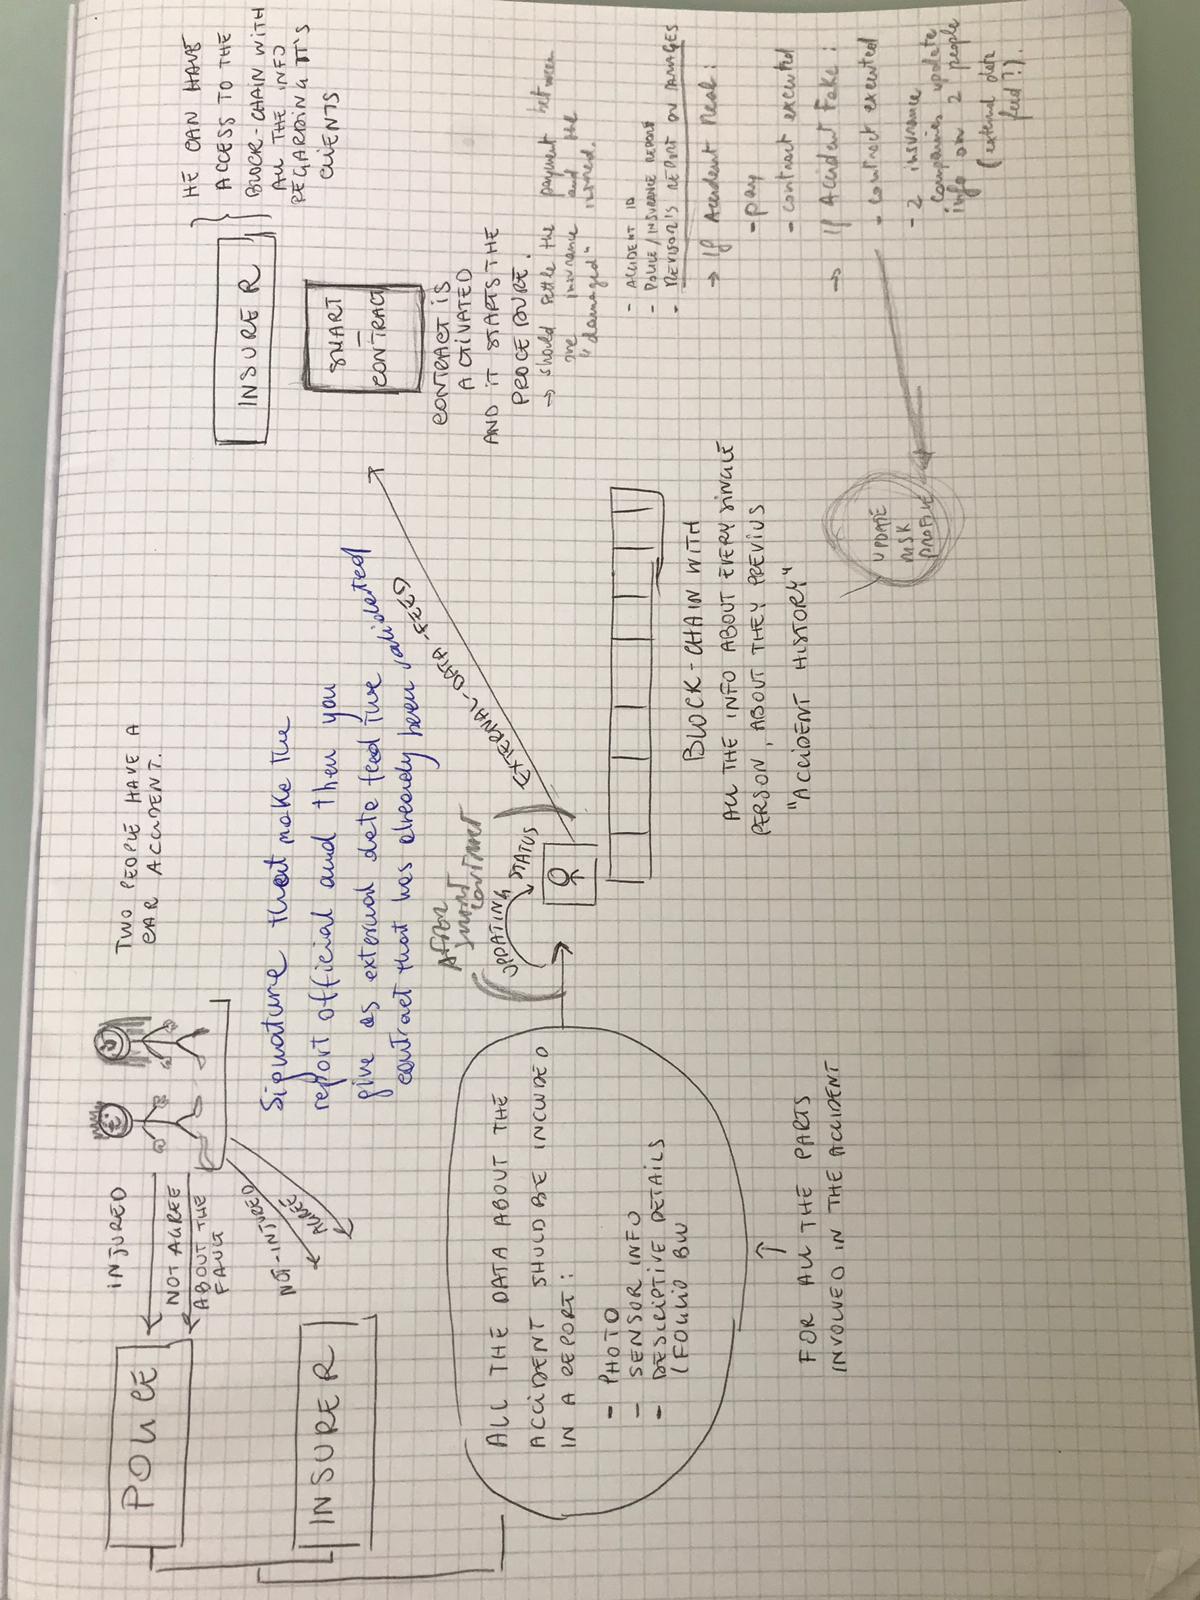 TWO PEOPLE HAVE A
CAR ACCIDENT.
INJURED
NOT AGREE
ABOUT THE
FAULT
NOT-INJURED
AGREE
POLICE
INSURER
Signature that make the
report official and then you
give as external data feed the
contract that has already been validated
ALL THE DATA ABOUT THE
ACCIDENT SHULD BE INCLUDED
IN A REPORT:
- PHOTO
- SENSOR INFO
- DESCRIPTIVE DETAILS
(FOLLIO BLU
FOR ALL THE PARTS
INVOLVED IN THE ACCIDENT
AFTER
SMART
CONTRACT
UPDATING STATUS
EXTERNAL-DATA-FEED
BLOCK-CHAIN WITH
ALL THE INFO ABOUT EVERY SINGLE
PERSON, ABOUT THEY PREVIUS
"ACCIDENT HISTORY"
INSURER
HE CAN HAVE
ACCESS TO THE
BLOCK-CHAIN WITH
ALL THE INFO
REGARDING IT'S
CLIENTS
SMART
CONTRACT
CONTRACT IS
ACTIVATED
AND IT STARTS THE
PROCEDURE.
→ should settle the payment between
one insurance and the
"damaged" insured.
- ACCIDENT ID
- POLICE/INSURANCE REPORT
- REVISOR'S REPORT ON DAMAGES
→ If Accident Real:
- pay
- contract executed
→ If Accident Fake:
- contract executed
- 2 insurance
companies update
info on 2 people
(external data
feed?).
UPDATE
RISK
PROFILE